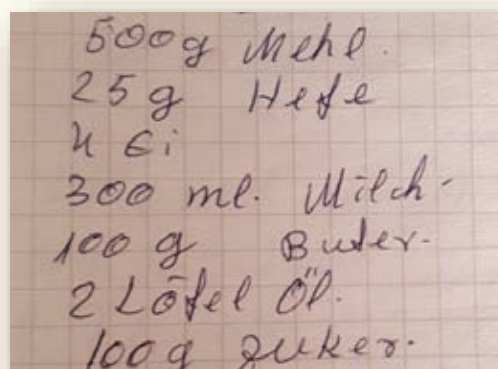 500g Mehl.
25 g Hefe
4 Ei
300 ml. Milch-
100 g Buter.
2 Löfel Öl.
100g Zuker.